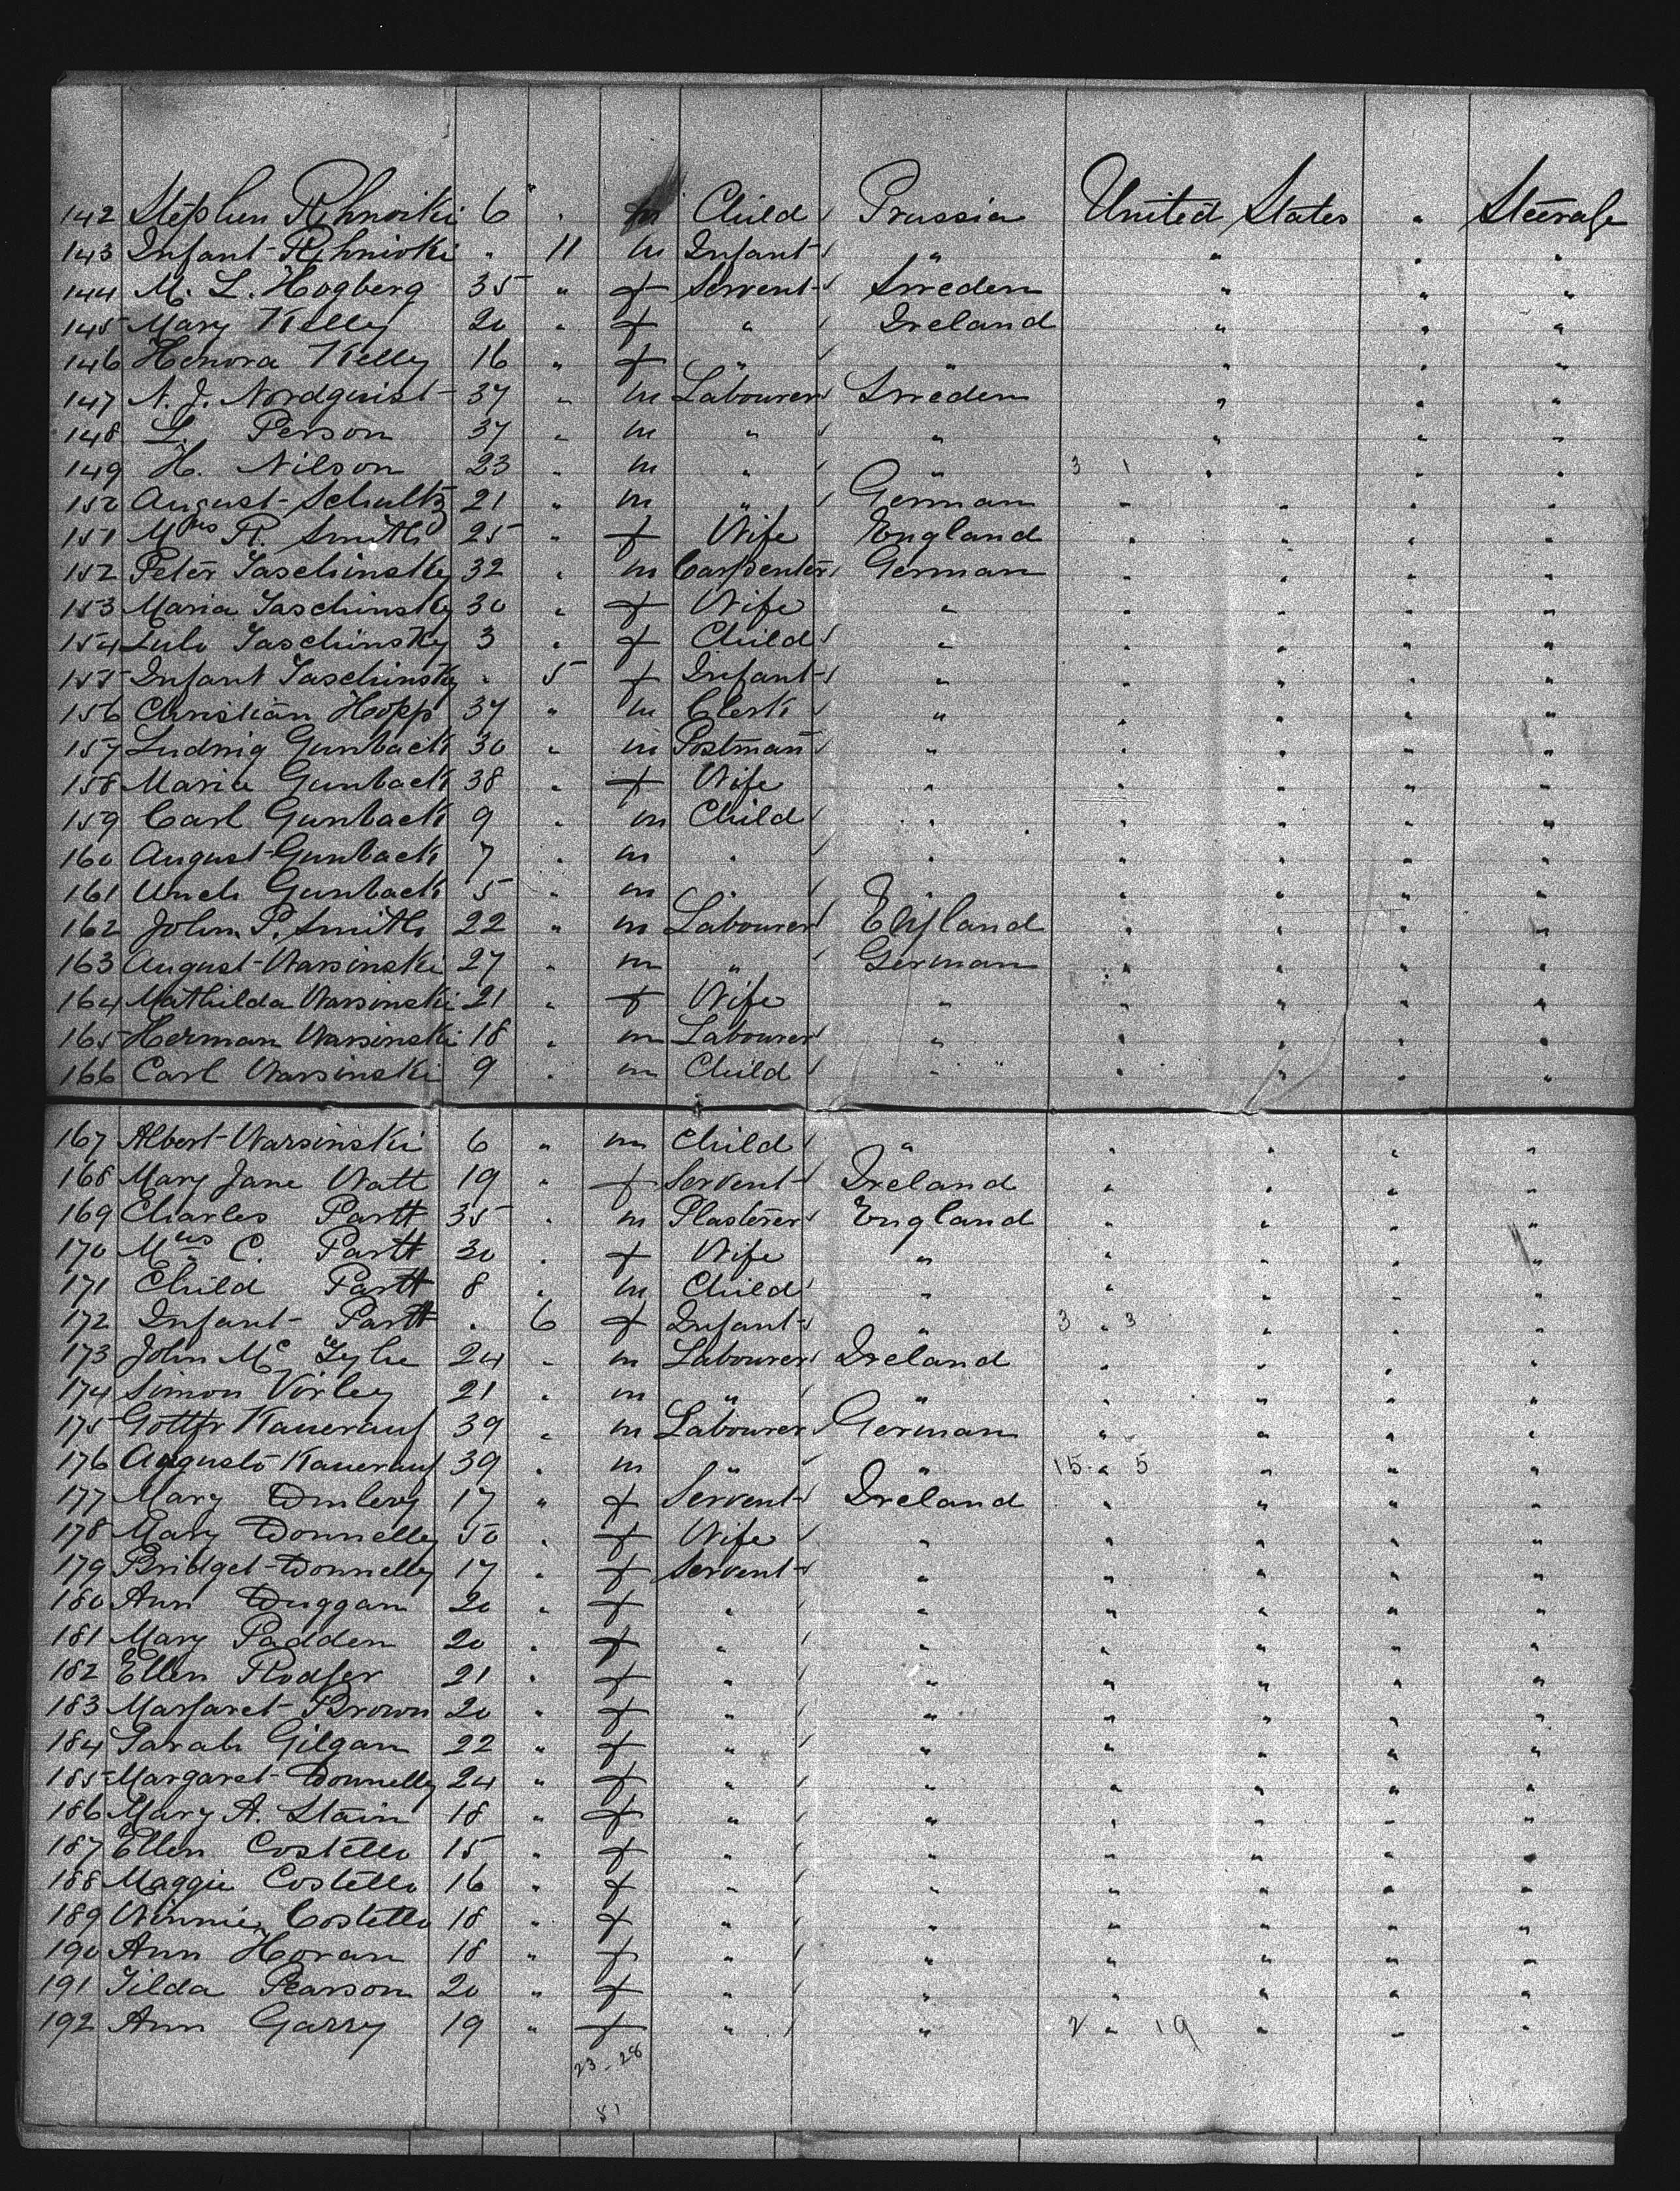 142 Stephen Rhnoiski 6 " " m Child Prussia United States " Steerage
143 Infant Rhnioski " 11 m Infant " " " "
144 M. L. Hogberg 35 " f Servent Sweden " " "
145 Mary Kelly 20 " f " Ireland " " "
146 Honora Kelly 16 " f " " " " "
147 N. J. Nordquist 37 " m Labourer Sweden " " "
148 L. Person 37 " m " " " " "
149 H. Nilson 23 " m " " 3 1 " " "
150 August Schultz 21 " m " German " " " "
151 Mrs R. Smith 25 " f Wife England " " " "
152 Peter Jaschinsky 32 " m Carpenter German " " " "
153 Maria Jaschinsky 30 " f Wife " " " " "
154 Lulo Jaschinsky 3 " f Child " " " " "
155 Infant Jaschinsky " 5 f Infant " " " " "
156 Christian Hopp 37 " m Clerk " " " " "
157 Ludwig Gunback 30 " m Postman " " " " "
158 Maria Gunback 38 " f Wife " " " " "
159 Carl Gunback 9 " m Child " " " " "
160 August Gunback 7 " m " " " " " "
161 Gunback 5 " m " " " " " "
162 John P. Smith 22 " m Labourer England " " " "
163 August Warsinski 27 " m " German " " " "
164 Mathilda Warsinski 21 " f Wife " " " " "
165 Herman Warsinski 18 " m Labourer " " " " "
166 Carl Warsinski 9 " m Child " " " " "
167 Albert Warsinski 6 " m Child " " " " "
168 Mary Jane Watt 19 " f Servent Ireland " " " "
169 Charles Partt 35 " m Plasterer England " " " "
170 Mrs C. Partt 30 " f Wife " " " " "
171 Child Partt 8 " m Child " " " " "
172 Infant Partt " 6 f Infant " 3 " 3 " " "
173 John Mc 24 " m Labourer Ireland " " " "
174 Simon Virley 21 " m " " " " " "
175 Gottfr Kauerauf 39 " m Labourer German " " " "
176 Augusto Kauerauf 39 " m " " 15 " 5 " " "
177 Mary 17 " f Servent Ireland " " " "
178 Mary Donnelly 50 " f Wife " " " " "
179 Bridget Donnelly 17 " f Servent " " " " "
180 Ann Duggan 20 " f " " " " " "
181 Mary Padden 20 " f " " " " " "
182 Ellen Rodger 21 " f " " " " " "
183 Margaret Brown 20 " f " " " " " "
184 Sarah Gilgan 22 " f " " " " " "
185 Margaret Donnelly 24 " f " " " " " "
186 Mary A. Stain 18 " f " " " " " "
187 Ellen Costello 15 " f " " " " " "
188 Maggie Costello 16 " f " " " " " "
189 Winnie Costello 18 " f " " " " " "
190 Ann Horan 18 " f " " " " " "
191 Tilda Pearson 20 " f " " " " " "
192 Ann Garry 19 " f " " 2 " 19 " " "
23 - 28
51